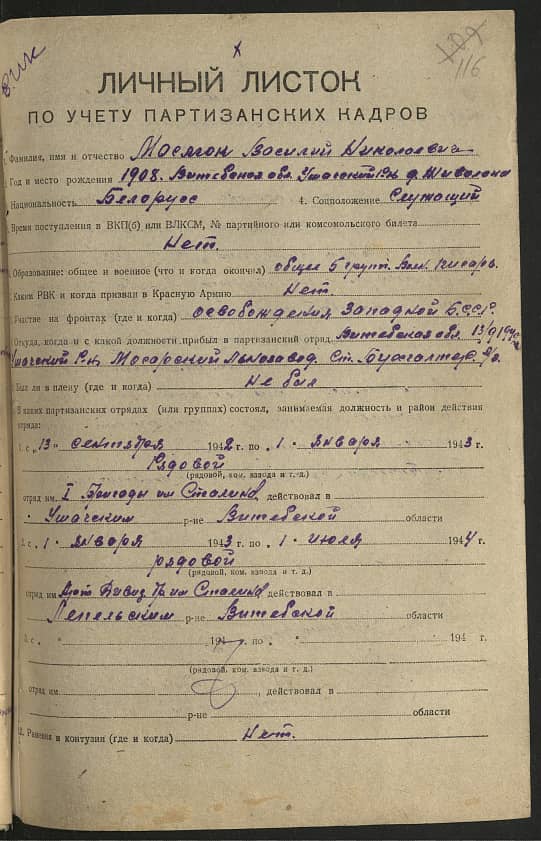 116
ЛИЧНЫЙ ЛИСТОК
ПО УЧЕТУ ПАРТИЗАНСКИХ КАДРОВ
Фамилия, имя и отчество Мосягон Василий Николаевич
Год и место рождения 1908. Витебская обл. Ушачский р-н д.
Национальность Белорус 4. Соцположение Служащий
Время поступления в ВКП(б) или ВЛКСМ, № партийного или комсомольского билета
Нет.
Образование: общее и военное (что и когда окончил) общее 5 групп. Воен. писарь.
Каким РВК и когда призван в Красную Армию Нет.
Участие на фронтах (где и когда) освобождения Западной БССР.
Откуда, когда и с какой должности прибыл в партизанский отряд Витебская обл. 13/9 1942
Ушачский р-н, Мосарский Льнозавод. Ст. Бухгалтер.
Был ли в плену (где и когда) Не был
В каких партизанских отрядах (или группах) состоял, занимаемая должность и район действия
отряда:
1. с „13" сентября 1942 г. по „1" января 1943 г.
Рядовой
(рядовой, ком. взвода и т. д.)
отряд им. I Бригады им Сталина, действовал в
Ушачским р-не Витебской области
2. с „1" января 1943 г. по „1" июля 1944 г.
рядовой
(рядовой, ком. взвода и т. д.)
отряд им. им Сталина действовал в
Лепельским р-не Витебской области
3. с „ " 194 г. по „ " 194 г.
(рядовой, ком. взвода и т. д.)
отряд им. , действовал в
р-не области
12. Ранения и контузии (где и когда) Нет.